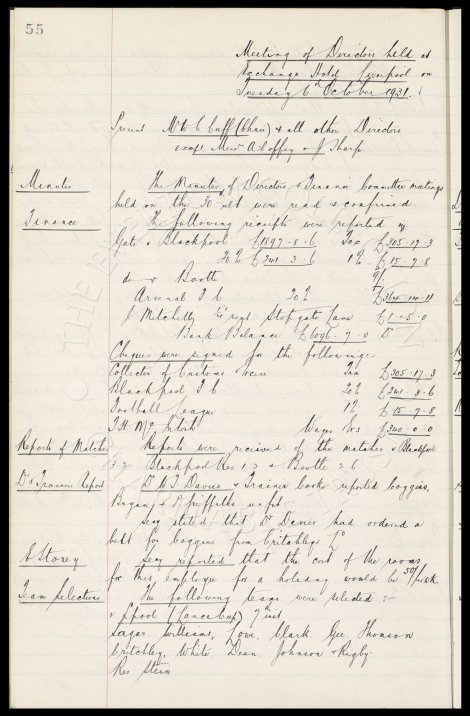 55
Meeting of Directors held at
Exchange Hotel Liverpool on
Tuesday 6th October 1931.
Present Mr W C Cuff (Chair) & all other Directors
except Messrs A Coffey & J Sharp
Minutes
The Minutes of Directors & Finance Committee meetings
held on the 30 ult were read & confirmed.
Finance
The following receipts were reported
Gate v Blackpool £1597-8-6 Tax £305-17-3
20% £241-3-6 1% £15-7-8
do v Bootle
Arsenal F C 20%
J Mitchell Stopgate Lane £1-5-0
Bank Balance £6096-7-0
Cheques were signed for the following:-
Collector of Customs Tax £305-17-3
Blackpool F C 20% £241-3-6
Football League 1% £15-7-8
Wages £340-0-0
Reports of Matches
Reports were received of the matches v Blackpool
3-2 Blackpool Res 1-2 & Bootle 2-6
Dr & Trainers Report
Dr & J Davies & Trainer Cooke reported Coggins,
& Griffiths unfit
Secy stated that Dr Davies had ordered a
belt for Coggins from Critchleys Ld
E Storey
Secy reported that the cost of the rooms
for this employee for a holiday would be 50/- week
Team Selections
The following teams were selected :-
v L'pool (Lancs Cup) 7th inst
Sagar. Williams, Lowe. Clark. Gee. Thomson
Critchley. White. Dean. Johnson & Rigby.
Res. Stein